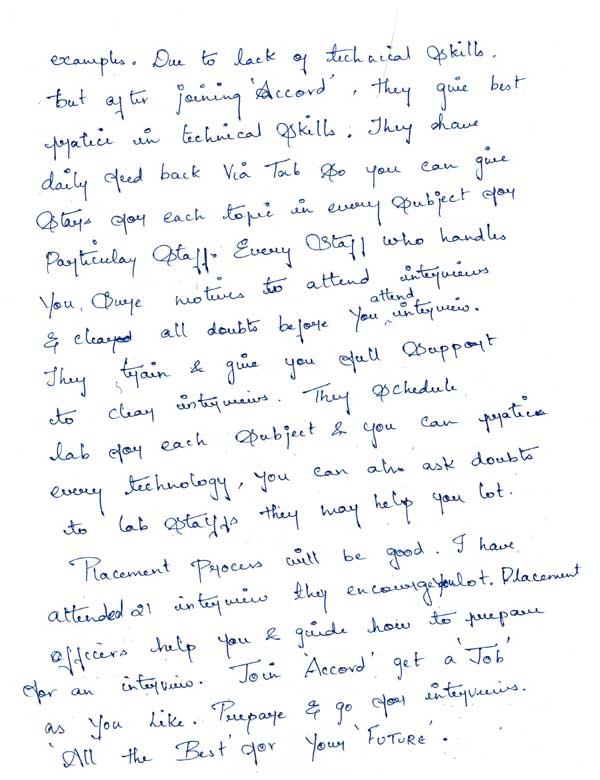 examples. Due to lack of technical skills.
but after joining 'Accord', they give best
pratice in technical skills. They have
daily feed back Via Tab so you can give
Stars for each topic in every subject for
Particular Staff. Every Staff who handles
You, Sure motives to attend interviews
& cleared all doubts before You attend interview.
They train & give you full support
to clear interviews. They schedule
lab for each subject & you can pratice
every technology, you can also ask doubts
to lab staffs they may help you lot.
Placement Process will be good. I have
attended 21 interview they encourge you lot. Placement
officers help you & guide how to prepare
for an interview. Join 'Accord' get a 'Job'
as You Like. Prepare & go for interviews.
'All the Best' for Your 'FUTURE'.